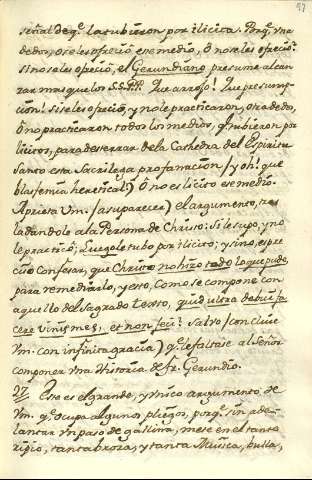 97
señal de q.e la tubieron por ilicita. Porq.e vna
de dos, o se les ofreció ese medio, ó no se les ofreció:
si no se les ofreció, el Gerundiano presume alcan
zar mas que los S.S. P.P. Que arrojo! Que presump-
cion! si se les ofreció, y no le practicaron, otra de dos,
ó no practicaron todos los medios, q.e tubieron por
licitos, para desterrar de la Cathedra del Espiritu
Santo esta sacrilega profanacion (y oh! que
blasfemia heretical!) Ó no es licito ese medio.
Aprieta Vm. (a su parecer) el argumento, tras
ladandole a la Persona de Christo: Si le supo, y no
le practicó; Luego le tubo por ilicito; y sino, es pre
ciso confesar, que Christo no hizo todo lo que pude,
para remediarlo, y esto, como se compone con
aquello del Sagrado texto, quid ultra debui fa
cere vineæ meæ, et non feci? Salvo (concluie
Vm. con infinita gracia) q.e le faltase al Señor
componer vna Historia de fr. Gerundio.
27 Este es el grande, y vnico argumento de
Vm. q.e ocupa algunos pliegos, porq.e sin ade-
lantar vn paso de gallina, mete en el tanto
ripio, tanta broza, y tanta Musica, bulla,